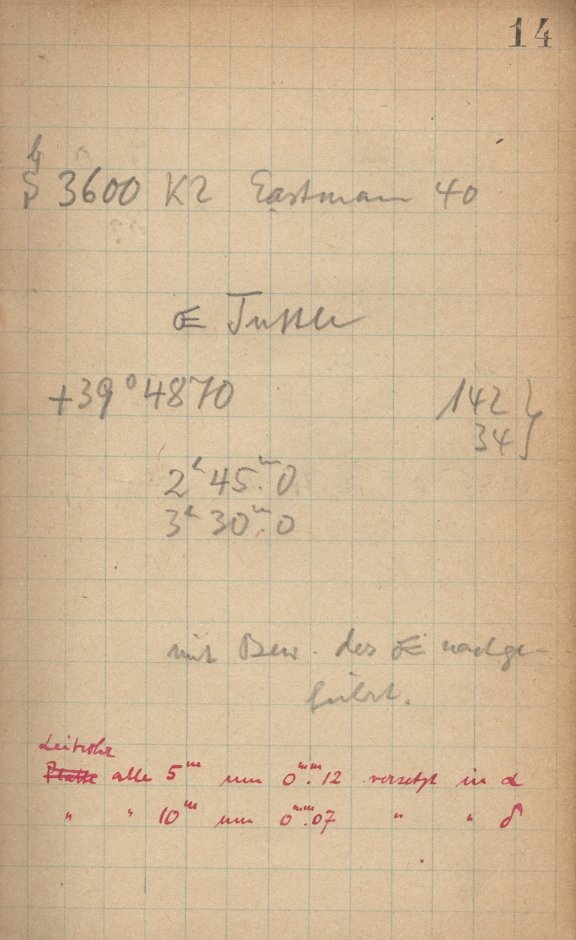 14
3600 K2 Eastman 40
☄ Tuttle
+39° 4870 142 }
34 }
2ʰ 45ᵐ.0
3ʰ 30ᵐ.0
mit Bew. des ☄ nachge-
führt.
Leitrohr
Platte alle 5ᵐ um 0ᵐᵐ.12 versetzt in α
" " 10ᵐ um 0ᵐᵐ.07 " " δ